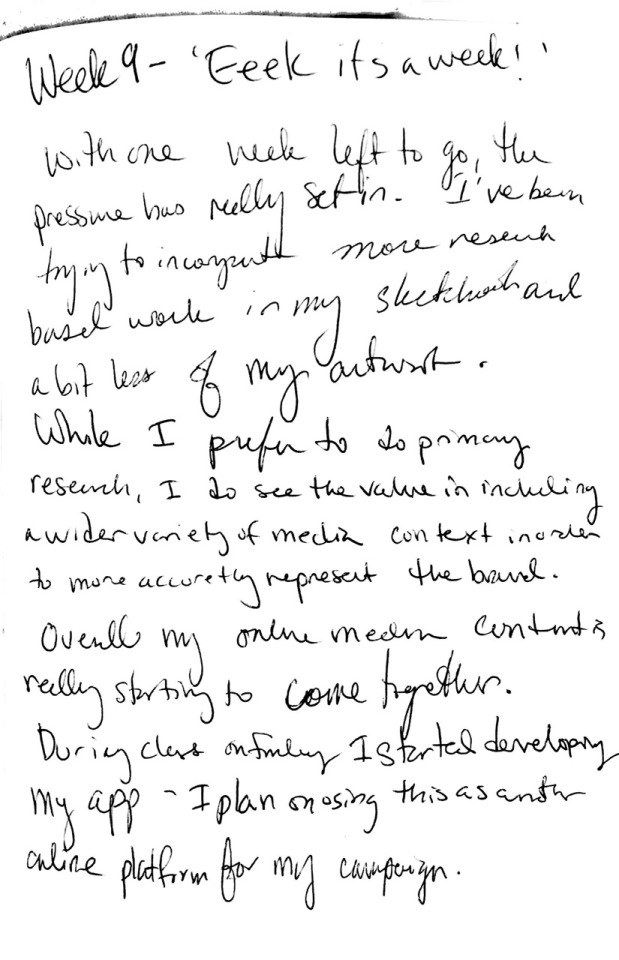 Week 9 - 'Eeek its a week!'
With one week left to go, the
pressure has really set in. I've been
trying to incorporate more research
based work in my sketchbook and
a bit less of my artwork.
While I prefer to do primary
research, I do see the value in including
a wider variety of media context in order
to more accuretly represent the brand.
Overall my online media content is
really starting to come together.
During class on I started developing
my app - I plan on using this as another
online platform for my campaign.